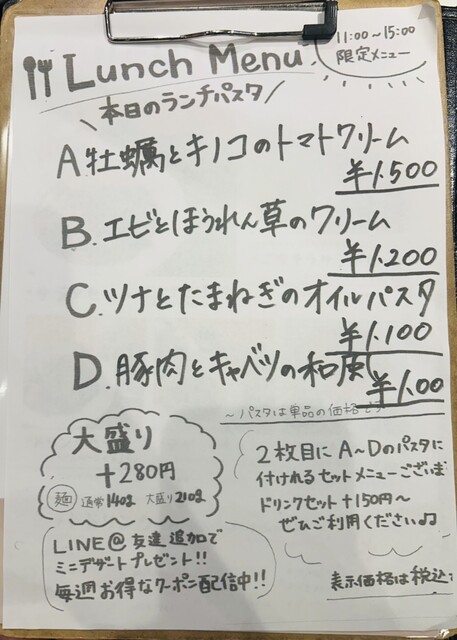 Lunch Menu
11:00~15:00
限定メニュー
本日のランチパスタ
A 牡蠣とキノコのトマトクリーム
¥1.500
B. エビとほうれん草のクリーム
¥1.200
C. ツナとたまねぎのオイルパスタ
¥1.100
D. 豚肉とキャベツの和風
¥1.00
~パスタは単品の価格です
大盛り
+280円
麺 通常140g 大盛り210g
2枚目にA~Dのパスタに
付けれるセットメニューございま
ドリンクセット+150円~
ぜひご利用ください♫
LINE@友達追加で
ミニデザートプレゼント!!
毎週お得なクーポン配信中!!
表示価格は税込